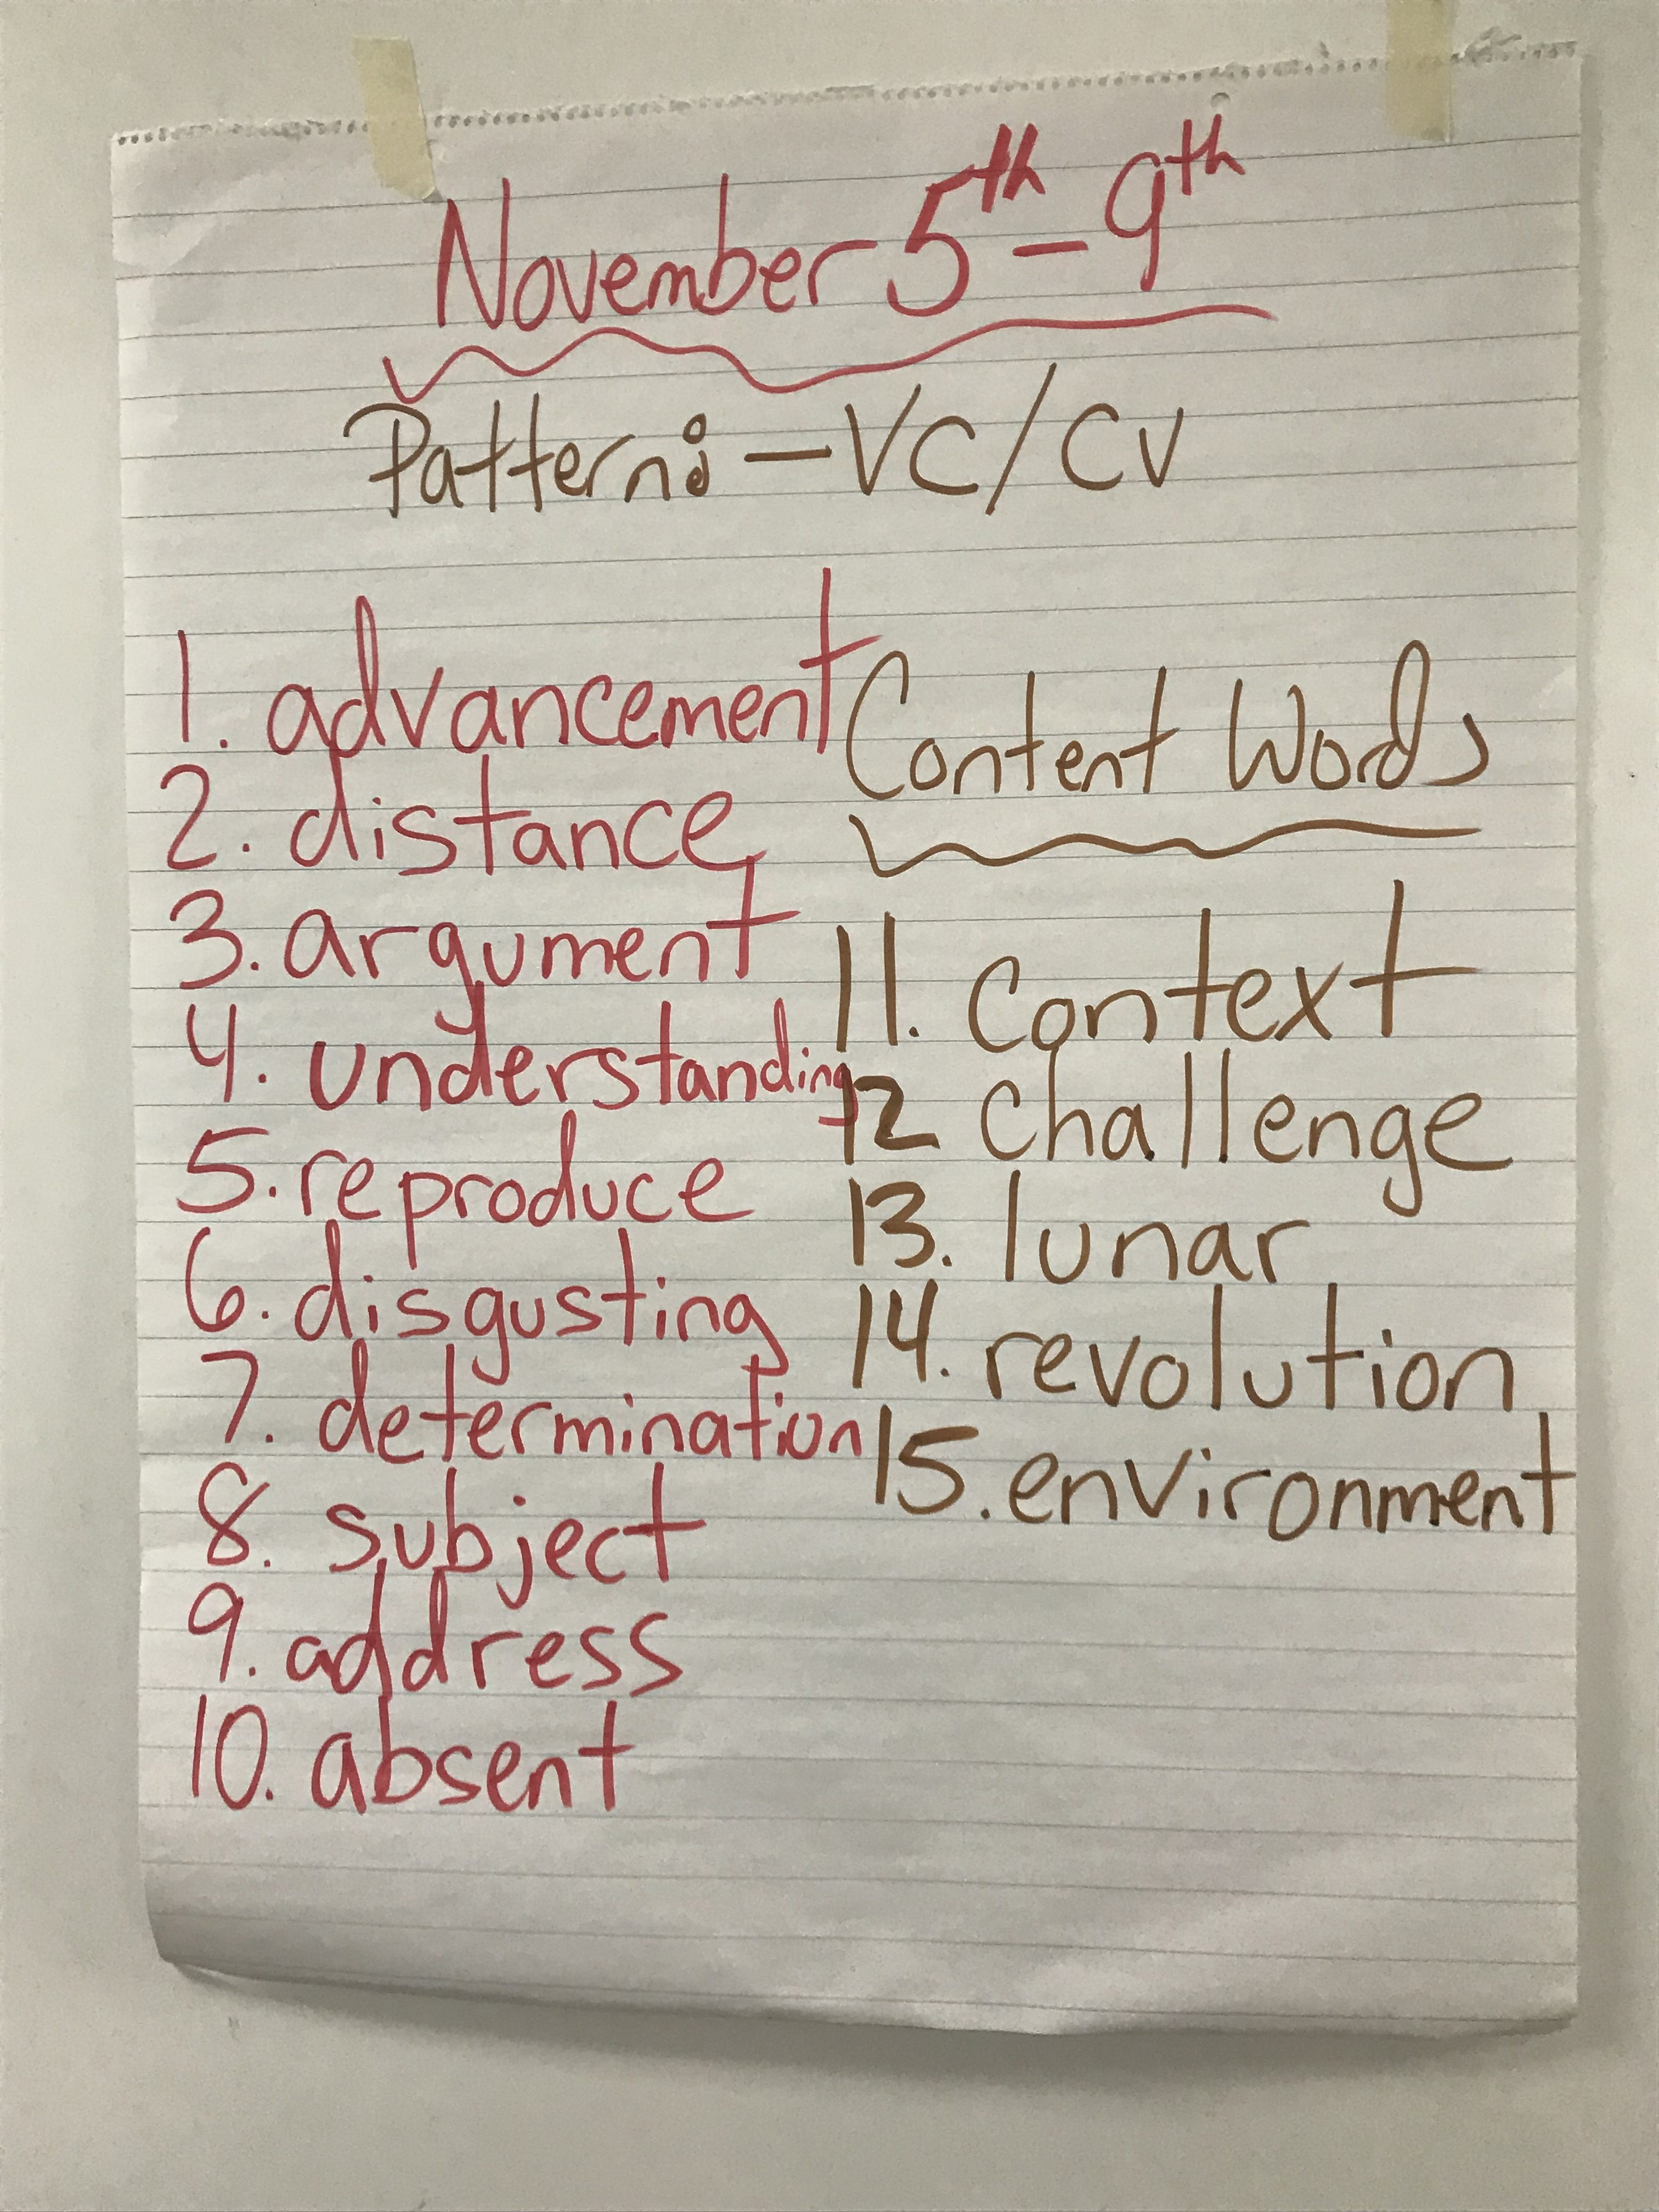 November 5th - 9th
Pattern: - VC/CV
1. advancement
2. distance
3. argument
4. understanding
5. reproduce
6. disgusting
7. determination
8. subject
9. address
10. absent
Content Words
11. context
12 challenge
13. lunar
14. revolution
15. environment